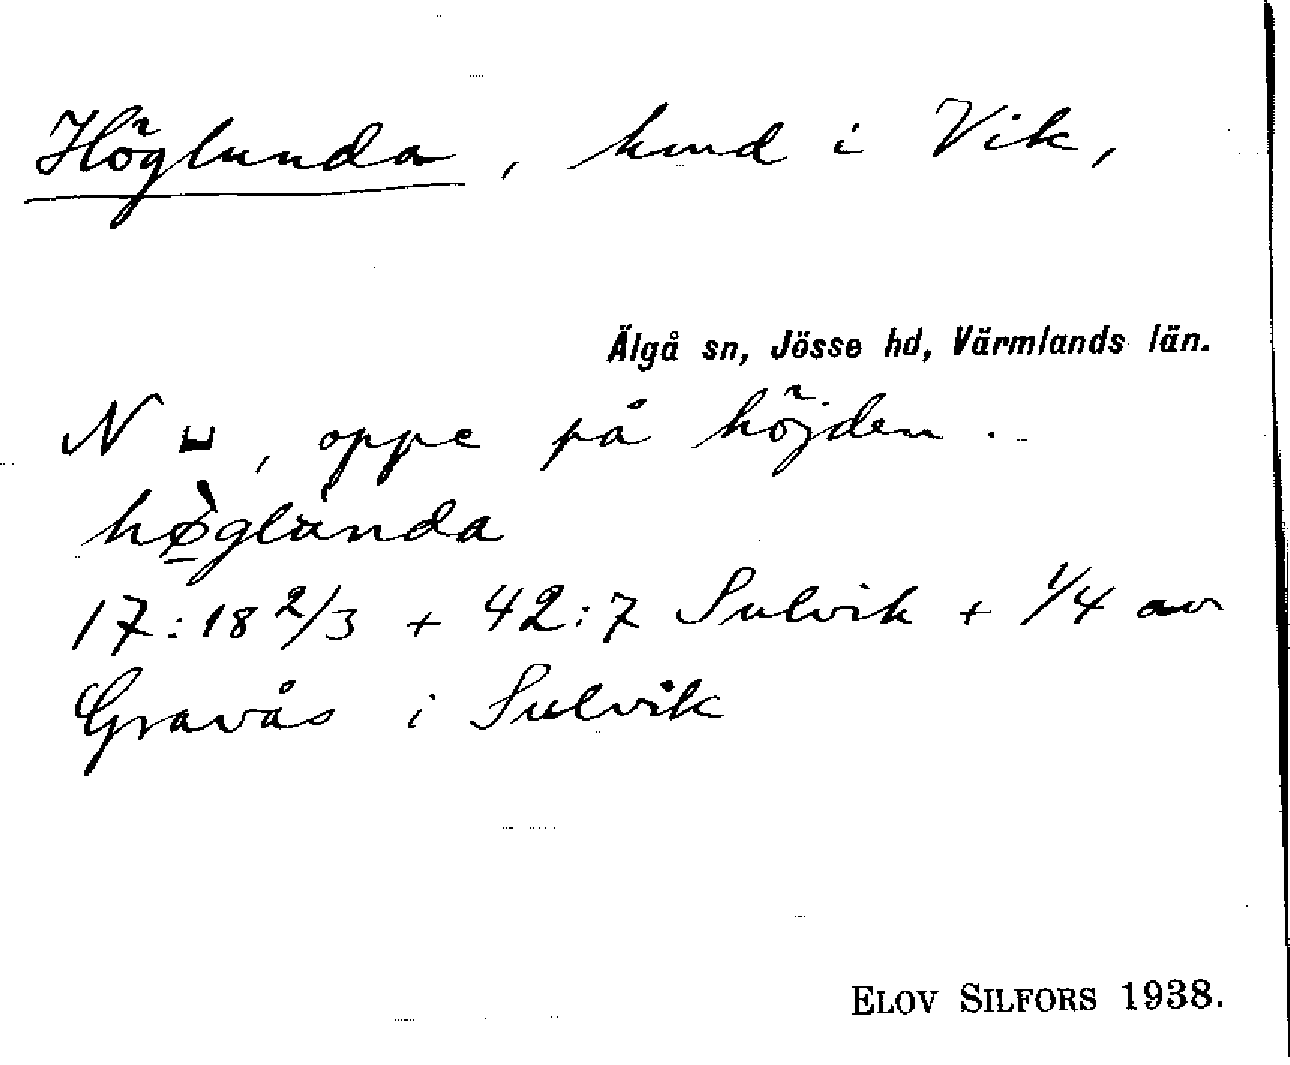 Höglunda, hmd i Vik,
Älgå sn, Jösse hd, Värmlands län.
N ⊔, oppe på höjden.
hø̀glùnda
17:18 2/3 + 42:7 Sulvik + 1/4 av
Gravås i Sulvik
ELOV SILFORS 1938.